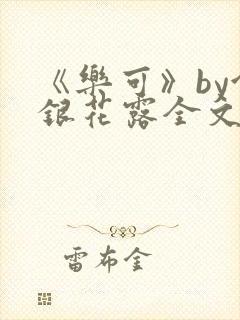 《樂可》by
銀花露全文
雷布金